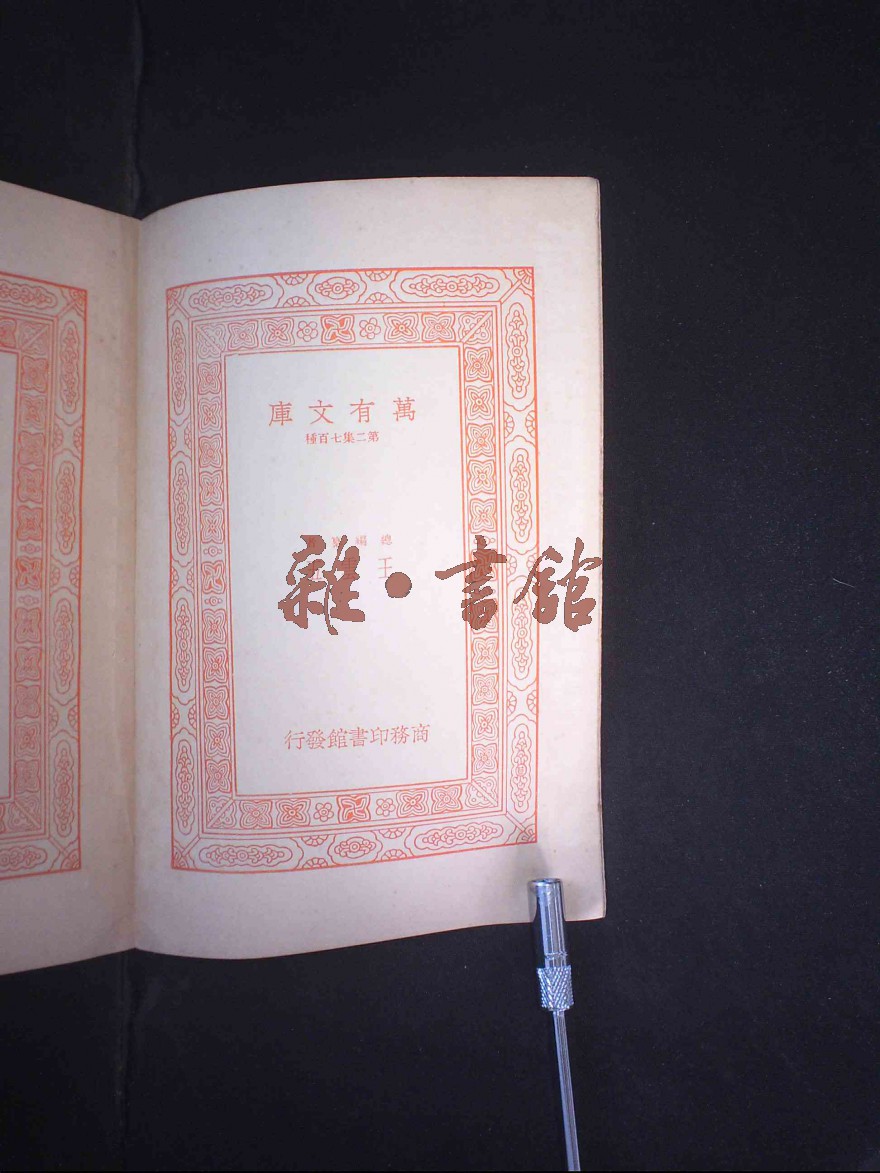 萬有文庫
第二集七百種
總編
王
商務印書館發行
雜·書館